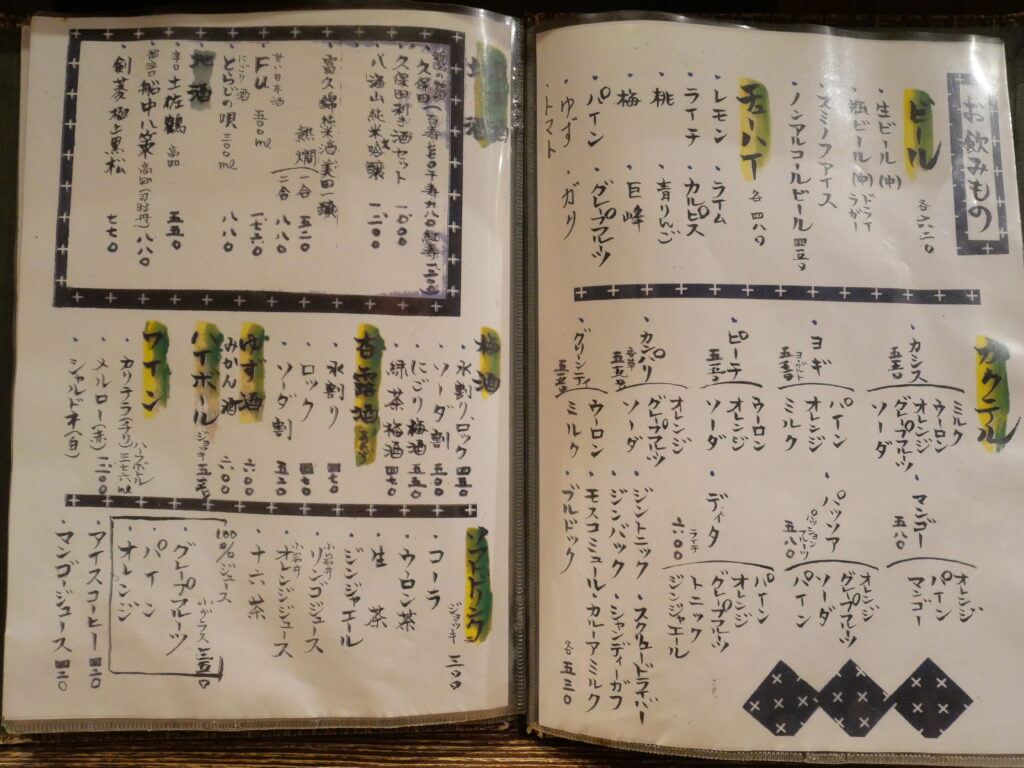 お飲みもの
ビール
・生ビール(中)ドライ
・瓶ビール(中)ドライ ラガー
各六二〇
・スミノフアイス
・ノンアルコルビール 四五〇
チューハイ
各四八〇
・レモン
・ライム
・ライチ
・カルピス
・桃
・青りんご
・梅
・巨峰
・パイン
・グレープフルーツ
・ゆず
・ガリ
・トマト
カクテル
・カシス
五五〇
ミルク
ウーロン
オレンジ
グレープフルーツ
ソーダ
・ヨギ
ヨーグルト
五五〇
パイン
オレンジ
ミルク
・ピーチ
五五〇
ウーロン
オレンジ
ソーダ
・カンパリ
五五〇
オレンジ
グレープフルーツ
ソーダ
・グリーンティ
五五〇
ウーロン
ミルク
・マンゴー
五八〇
オレンジ
パイン
マンゴー
・パッソア
パッションフルーツ
五八〇
オレンジ
グレープフルーツ
ソーダ
パイン
・ディタ
ライチ
六〇〇
パイン
オレンジ
グレープフルーツ
トニック
ジンジャエール
・ジントニック
・スクリュードライバー
・ジンバック
・シャンディーガフ
・モスコミュール
・カルーアミルク
・ブルドック
各五三〇
地酒
・久保田 百寿七七〇 千寿九八〇 紅寿一二〇〇
・久保田利き酒セット 一、〇〇〇
・八海山純米吟醸 一、二〇〇
・富久錦純米酒美田一譲
熱燗
一合 五二〇
二合 八八〇
甘い日本酒
・Fu 五〇〇ml 一、七六〇
にごり酒
・とらじの唄 三〇〇ml 八八〇
地酒
辛口
・土佐鶴 高知 五五〇
超辛口
・船中八策 高知(司牡丹) 八八〇
・剣菱 極上黒松 七七〇
梅酒
・水割り、ロック 四五〇
・ソーダ割 五〇〇
・にごり梅酒 五五〇
・緑茶梅酒 四七〇
杏露酒
・水割り 四七〇
・ロック 四七〇
・ソーダ割 五二〇
ゆず酒 六〇〇
みかん酒 六〇〇
ハイボール ジョッキ 五五〇
ワイン
・カッチェラ(チリ) ハーフボトル 三七六ml
・メルロー(赤) 一、二〇〇
・シャルドネ(白)
ソフトドリンク
ジョッキ 三〇〇
・コーラ
・ウーロン茶
・生茶
・ジンジャエール
小岩井
・リンゴジュース
小岩井
・オレンジジュース
・ナナ茶
100%ジュース
・グレープフルーツ
・パイン
・オレンジ
小グラス 三五〇
・アイスコーヒー 四二〇
・マンゴージュース 四二〇